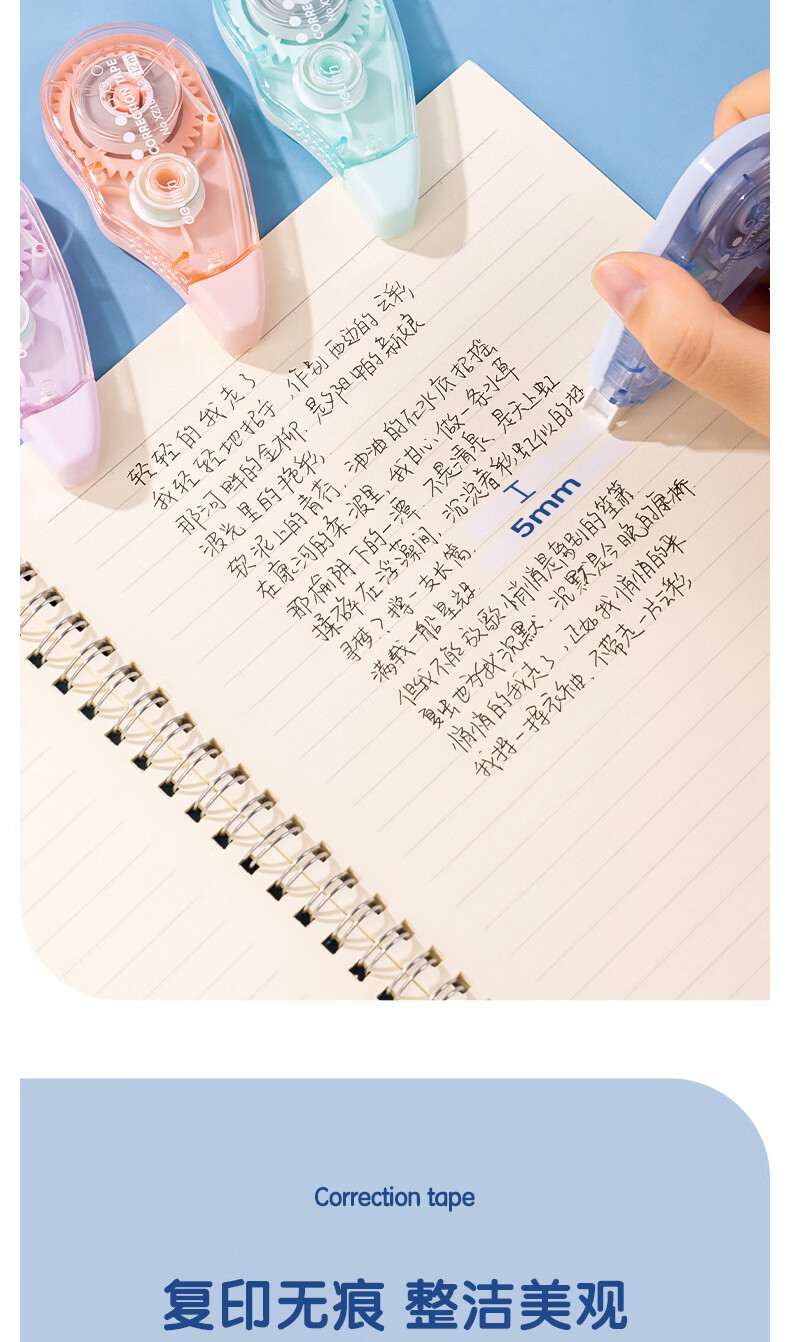 CORRECTION TAPE
deli
CORRECTION TAPE
deli
轻轻的我走了
我轻轻地招手，作别西边的云彩
那河畔的金柳，是夕阳中的新娘
波光里的艳影
软泥上的青荇，油油的在水底招摇
在康河的柔波里，我甘心做一条水草
那榆阴下的一潭 不是清泉，是天上虹
揉碎在浮藻间，沉淀着彩虹似的梦
寻梦？撑一支长篙
满载一船星辉
但我不能放歌 悄悄是离别的笙箫
夏虫也为我沉默，沉默是今晚的康桥
悄悄的我走了，正如我悄悄的来
我挥一挥衣袖，不带走一片云彩
5mm
Correction tape
复印无痕 整洁美观